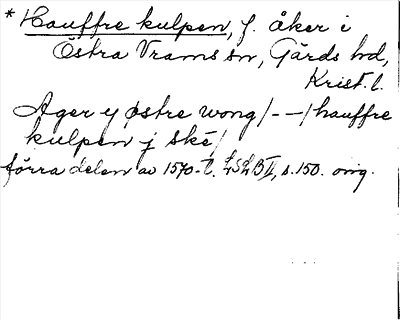 * Hauffre kulpen, f. åker i
Östra Vrams sn, Gärds hd,
Krist. l.
Ager y østre wong /- -/ hauffre
kulpen j ské/
förra delen av 1570-t. LSLB II, s. 150. orig.